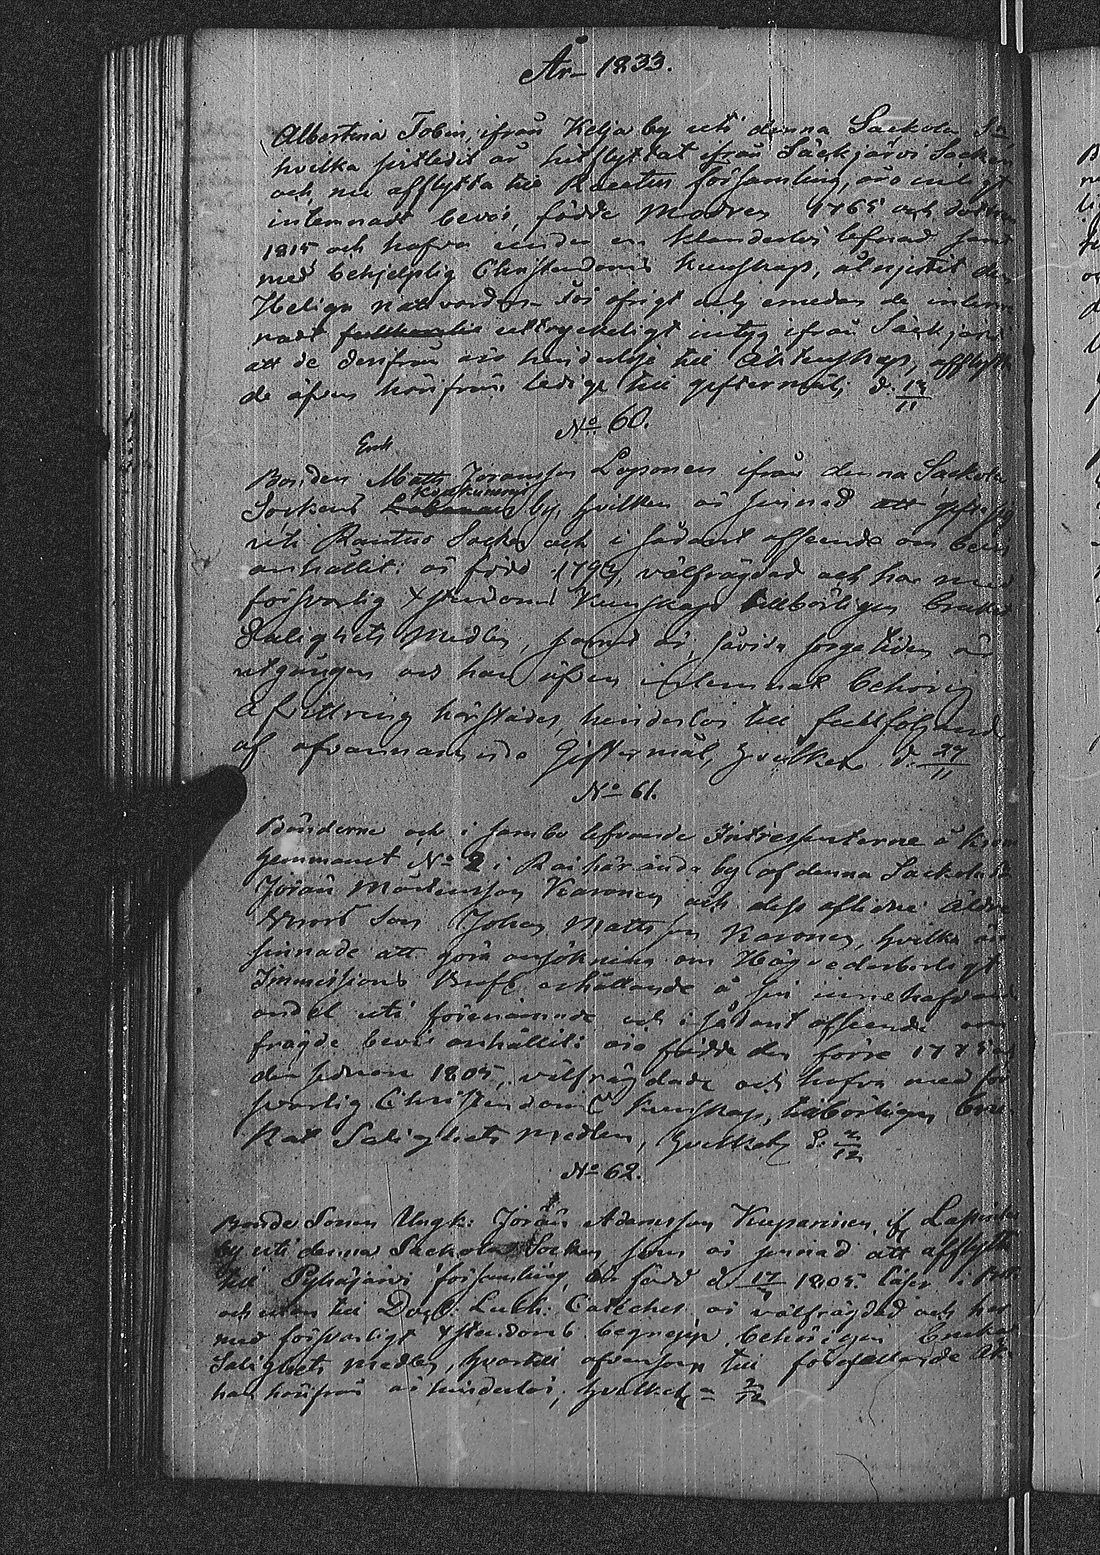 År 1833.
Albertina Tobin, ifrån Kelja by uti denna Sackola
hvilka sistledit år hitflyttat ifrån Säckjärvi Socken
och nu afflytta till Rautus församling, äro enligt
intemnadt bevis, födde Modren 1765 och dottren
1815, och hafva under en klanderlös lefnad samt
med behjelplig Christendoms kunskap, åtnjutit den
Heliga nattvarden. För öfrigt och emedan de
uttryckeligt intyg ifrån Säckjärvi
att de derifrån äro hinderlöse till Äktenskap, afflytta
de äfven härifrån ledige till giftermål; d. 14/11
No 60.
Enk
Bonden Matts Jöransson Loponen ifrån denna Sackola
Sockens by, hvilken är sinnad att gifta sig
uti Rautus Socken och i sådant afseende om bevis
anhållit: är född 1792, välfrägdad och har med
försvarlig Xstendoms Kunskap tillbörligen brukat
Salighets Medlen, samt är, såvida sorgetiden är
utgången och han äfven intemnat behörig
Afvittring härstädes, hinderlös till fullföljande
af ofvannämnde Giftermål, hvilket d. 27/11
No 61.
Bönderne och i sambo lefvande Intressenterne å
hemmanet No 2 i by af denna Sackola
Jöran Mårtensson Karonen och dess aflidne Äldre
Brors Son Johan Mattsson Karonen, hvilka äro
sinnade att göra ansökning om Högvederbörligt
Immissions Bref erhållande å sin innehafvande
andel uti förenämnde och i sådant afseende om
frägde bevis anhållit: äro födde den förre 1775 och
den sednare 1805, välfrägdade och hafva med för
svarlig Christendoms kunskap, tillbörligen bru-
kat Salighets medlen, hvilket d. 2/12
No 62.
Bonde Sonen Ungk: Jöran Adamsson Kuparinen, if
by uti denna Sackola Socken som är sinnad att afflytta
till Pyhäjärvi församling, är född d 17/ 1805. läser i
och utan till Doct: Luth: Catechet är välfrägdad och har
med försvarligt Xstendoms begrepp behörigen brukat
Salighets medlen, hvartill äfvensom till förefallande Äk-
han härifrån är hinderlös, hvilket = 2/12